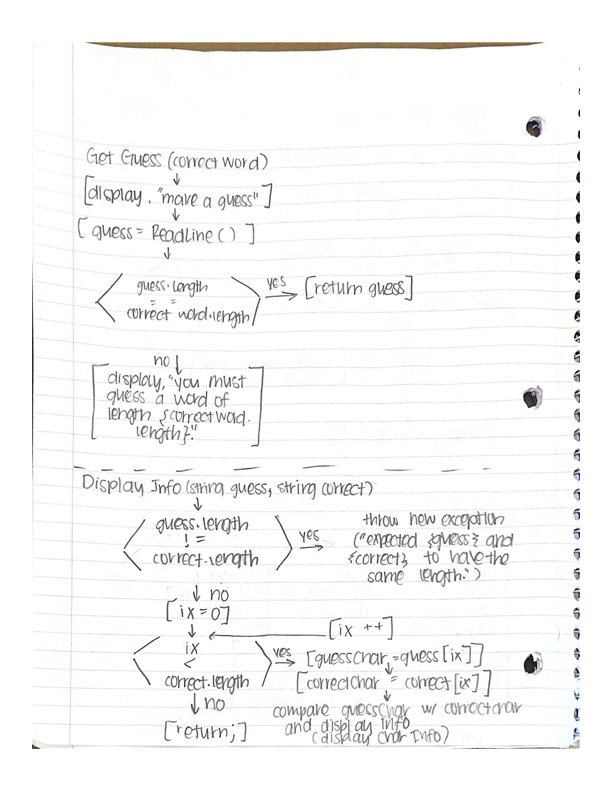 Get Guess (correct word)
↓
[display, "make a guess"]
↓
[guess = ReadLine()]
↓
guess.length
= =
correct word.length
yes → [return guess]
no ↓
[display, "you must
guess a word of
length {correctword.
length}."]
Display Info (string guess, string correct)
↓
guess.length
! =
correct.length
yes →
throw new exception
("expected {guess} and
{correct} to have the
same length.")
↓ no
[ix = 0]
↓
[ix ++]
ix
<
correct.length
yes →
[guessChar = guess[ix]]
↓
[correctChar = correct[ix]]
↓
compare guessChar w/ correctchar
and display info
(display char Info)
↓ no
[return;]